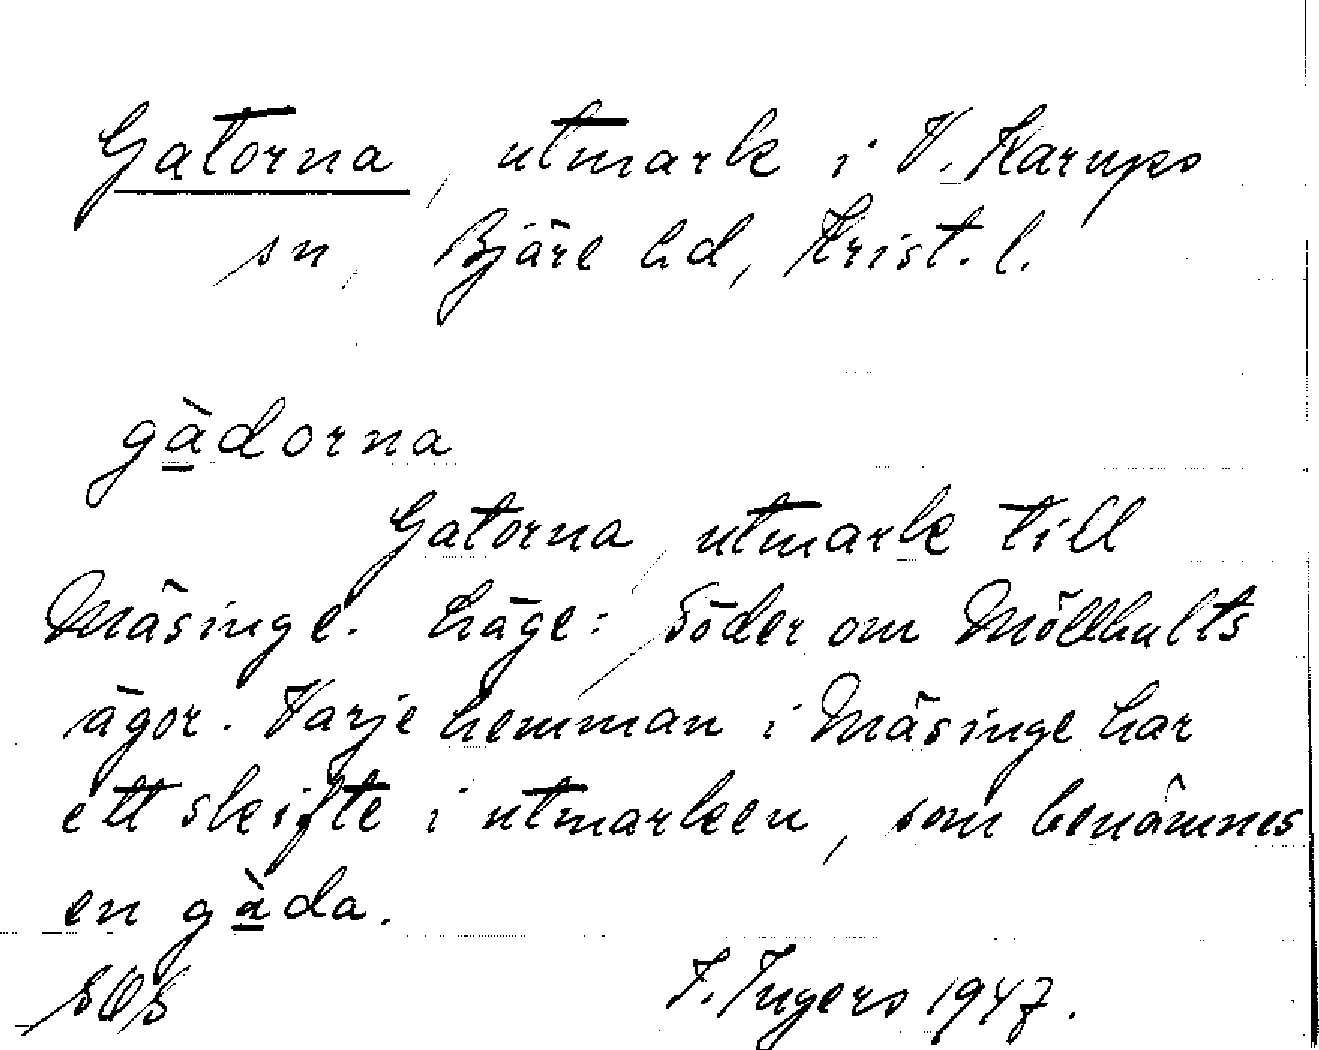 Gatorna, utmark i V. Karups
sn, Bjäre hd, Krist. l.
gà̱dorna
Gatorna, utmark till
Mäsinge. Läge: Söder om Möllhults
ägor. Varje hemman i Mäsinge har
ett skifte i utmarken, som benämnes
en gà̱da.
I. Ingers 1947.